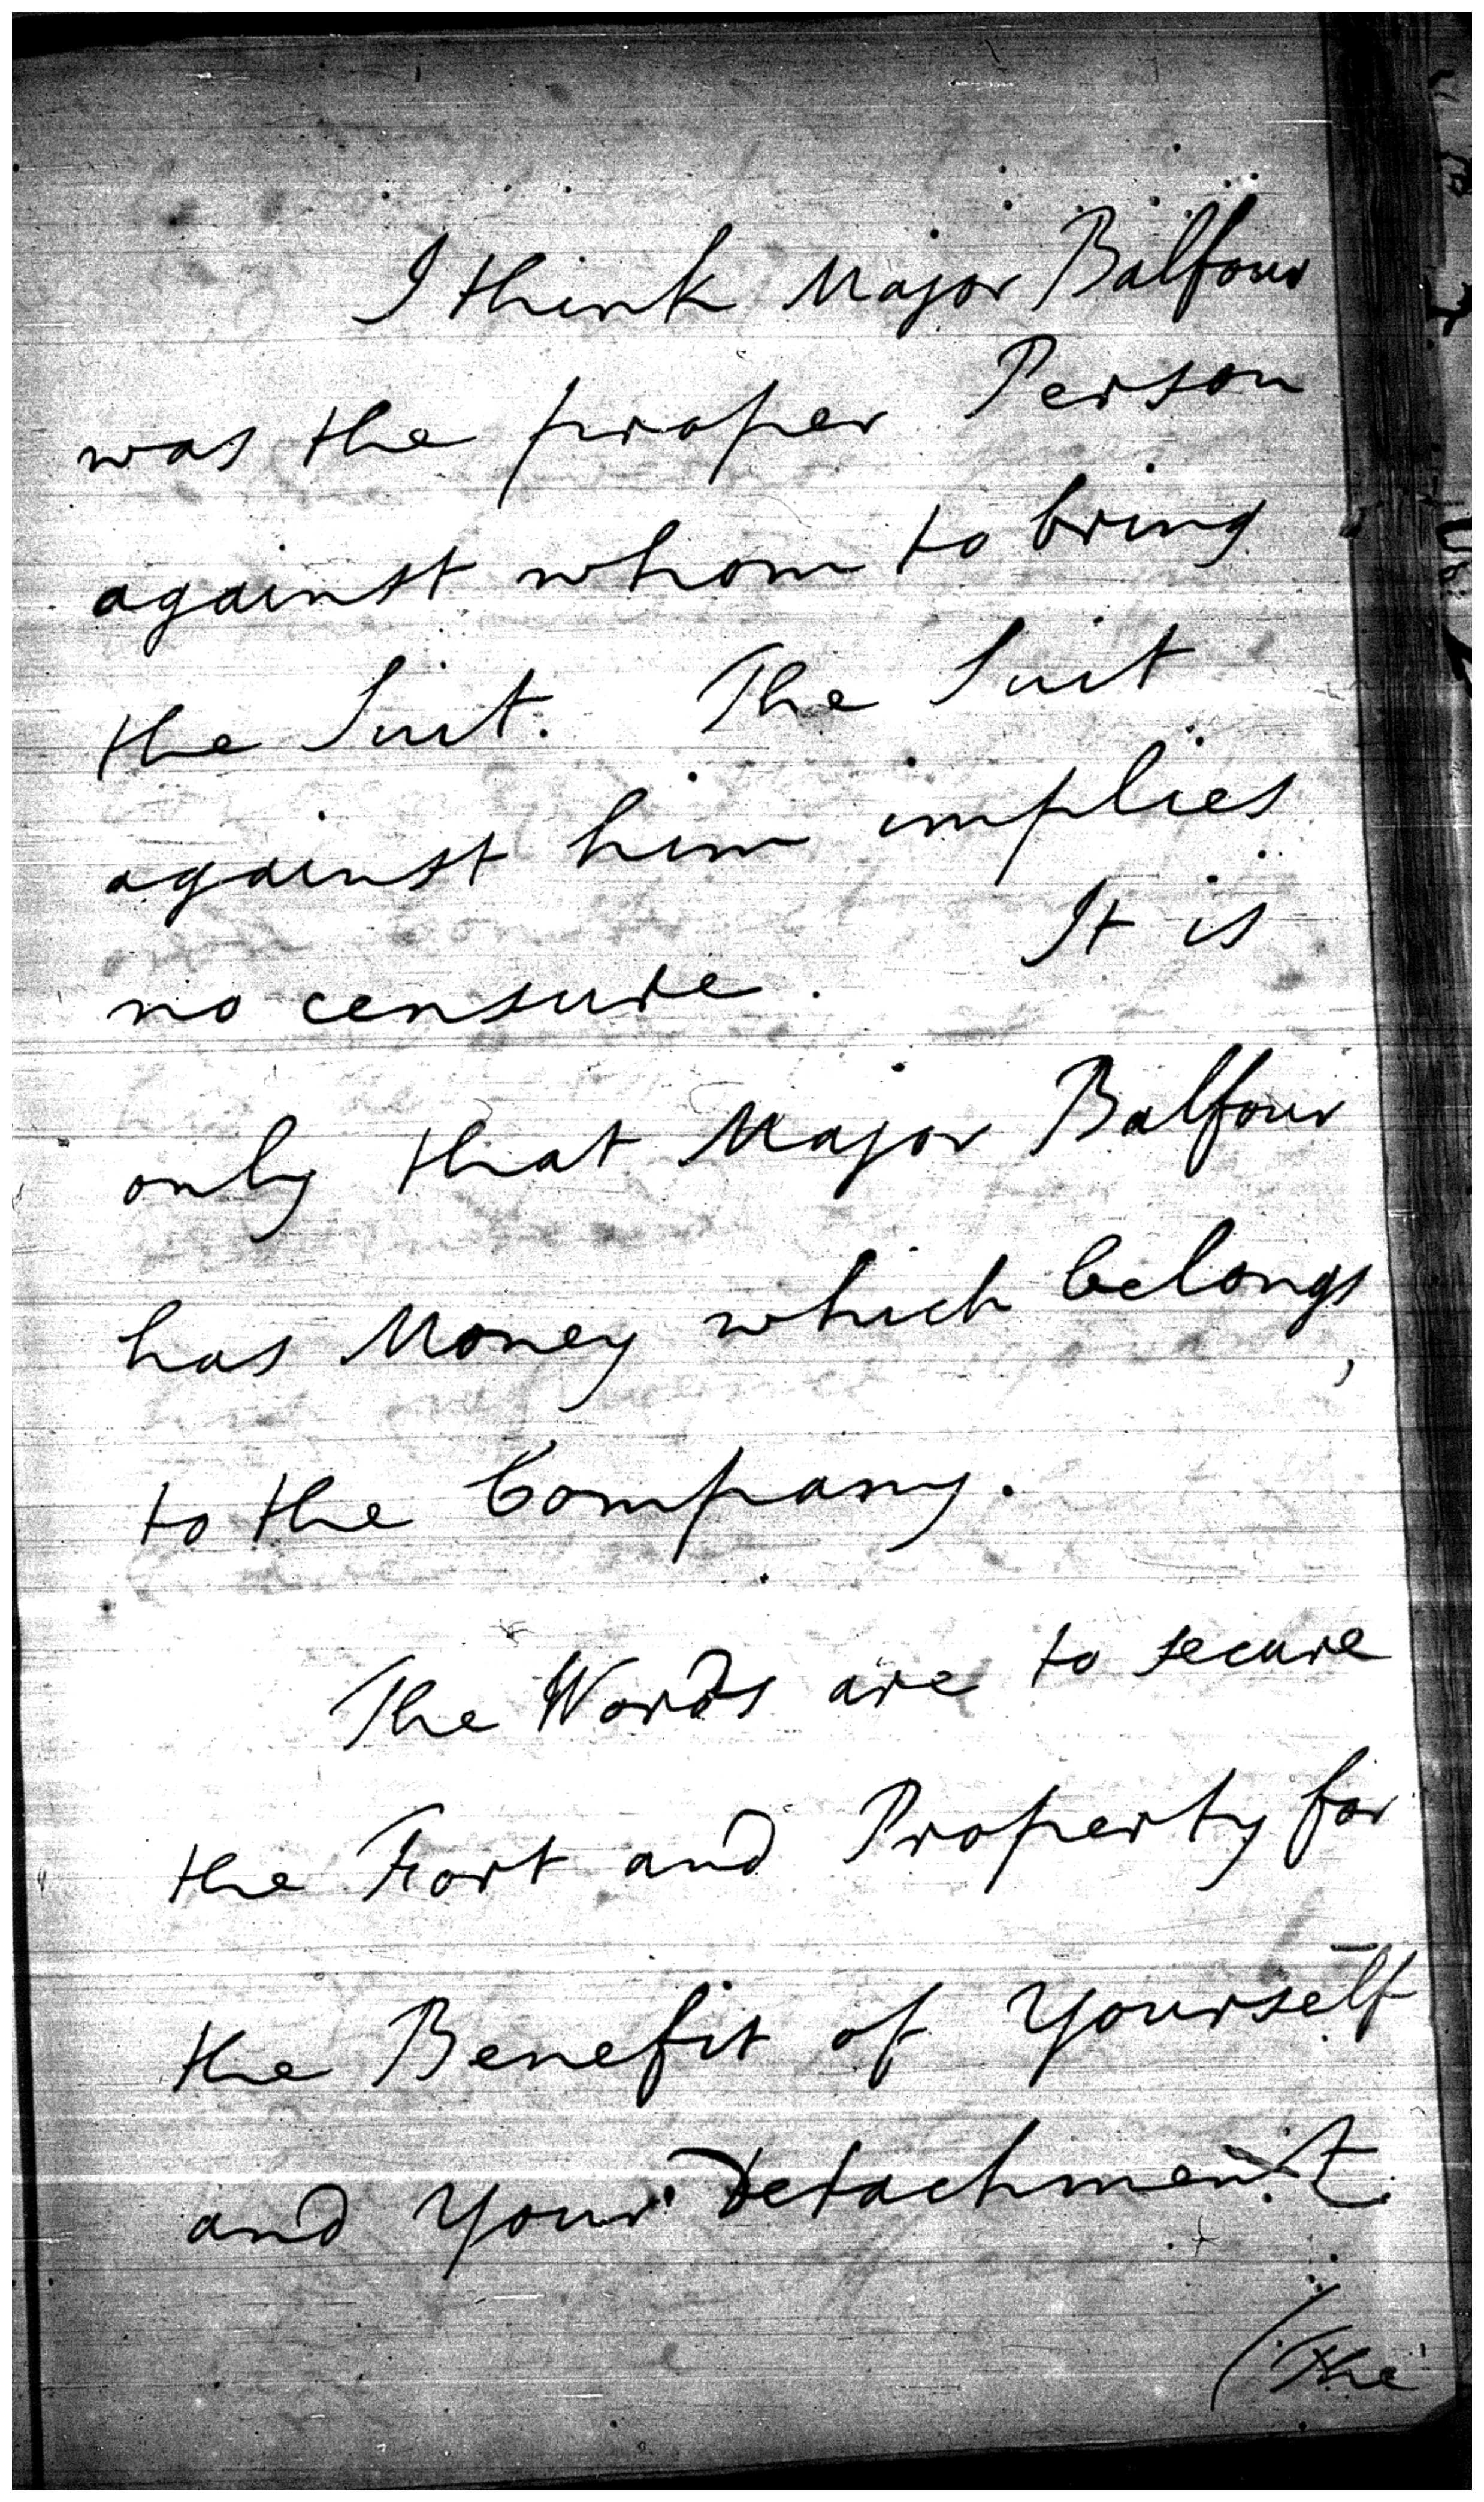 I think Major Balfour
was the proper Person
against whom to bring
the Suit. The Suit
against him implies
no censure. It is
only that Major Balfour
has Money which belongs,
to the Company.
The Words are to secure
the Fort and Property for
the Benefit of Yourself
and Your Detachment.
(The